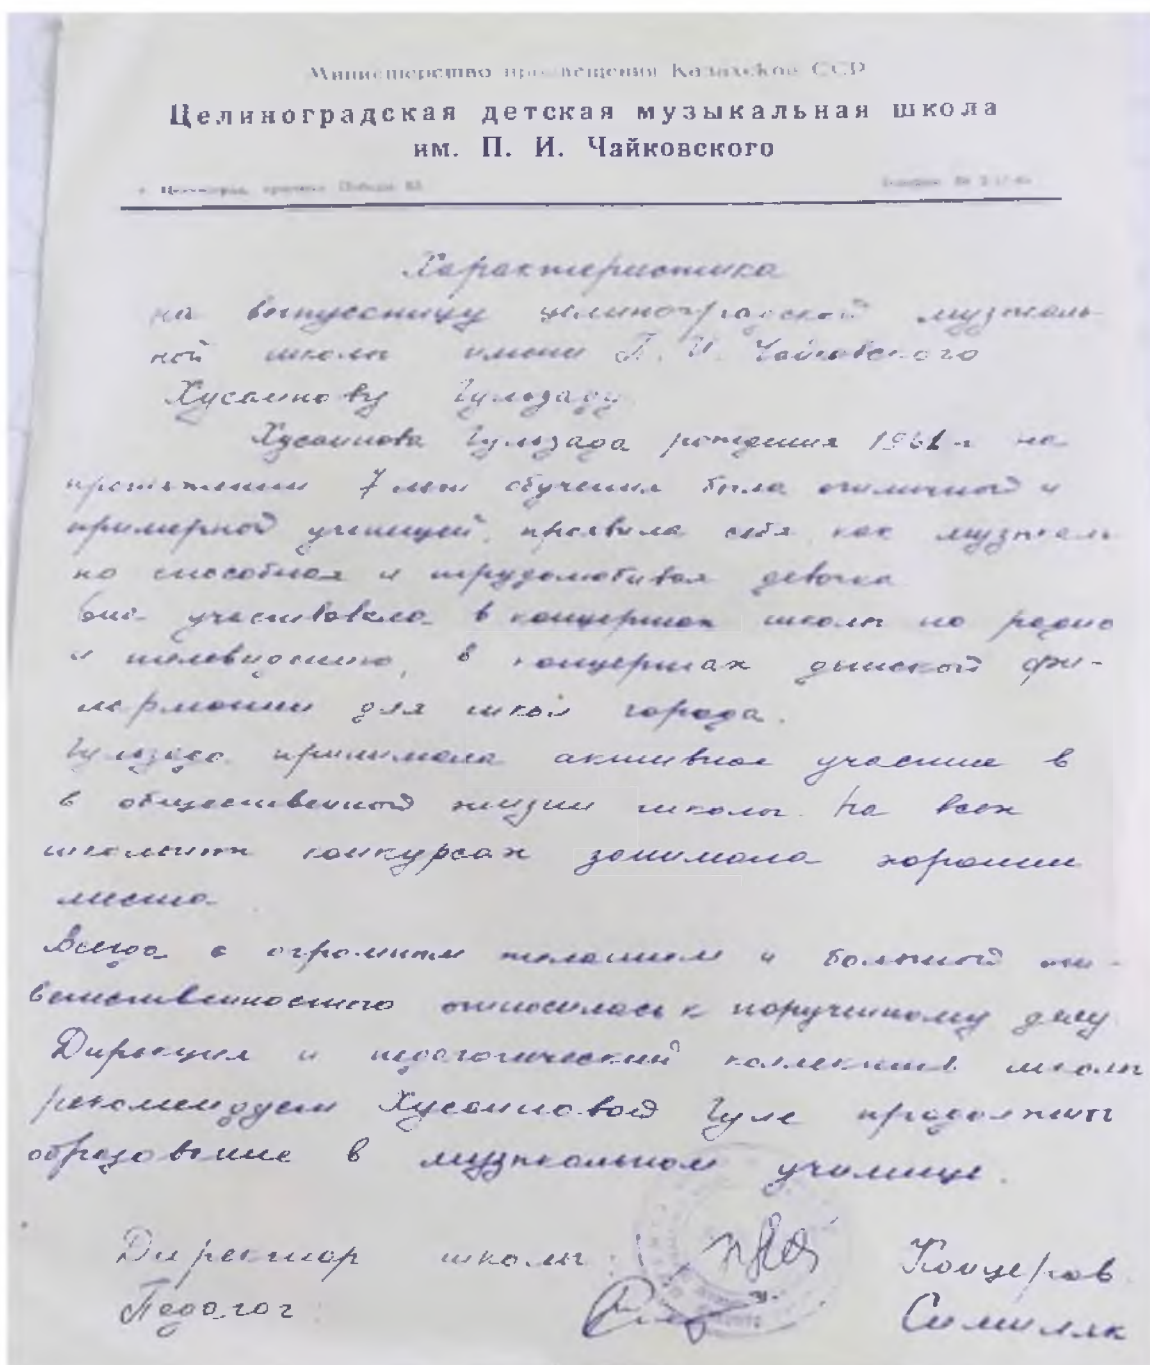 Министерство просвещения Казахской ССР
Целиноградская детская музыкальная школа
им. П. И. Чайковского
Характеристика
на выпускницу целиноградской музыкаль-
ной школы имени П. И. Чайковского
Хусаинову Гульзаду
Хусаинова Гульзада рождения 1961 г на
протяжении 7 лет обучения была отличной и
примерной ученицей, проявила себя, как музыкаль
но способная и трудолюбивая девочка
Она участвовала в концертах школы по радио
и телевидению, в концертах детской фи-
лармонии для школ города.
Гульзада принимала активное участие в
в общественной жизни школы. На всех
школьных конкурсах занимала хорошие
места.
Всегда с огромным желанием и большой от-
ветственностью относилась к порученному делу.
Дирекция и педагогический коллектив школы
рекомендует Хусаиновой Гуле продолжить
образование в музыкальном училище.
Директор школы: Концеров
Педагог Симиляк